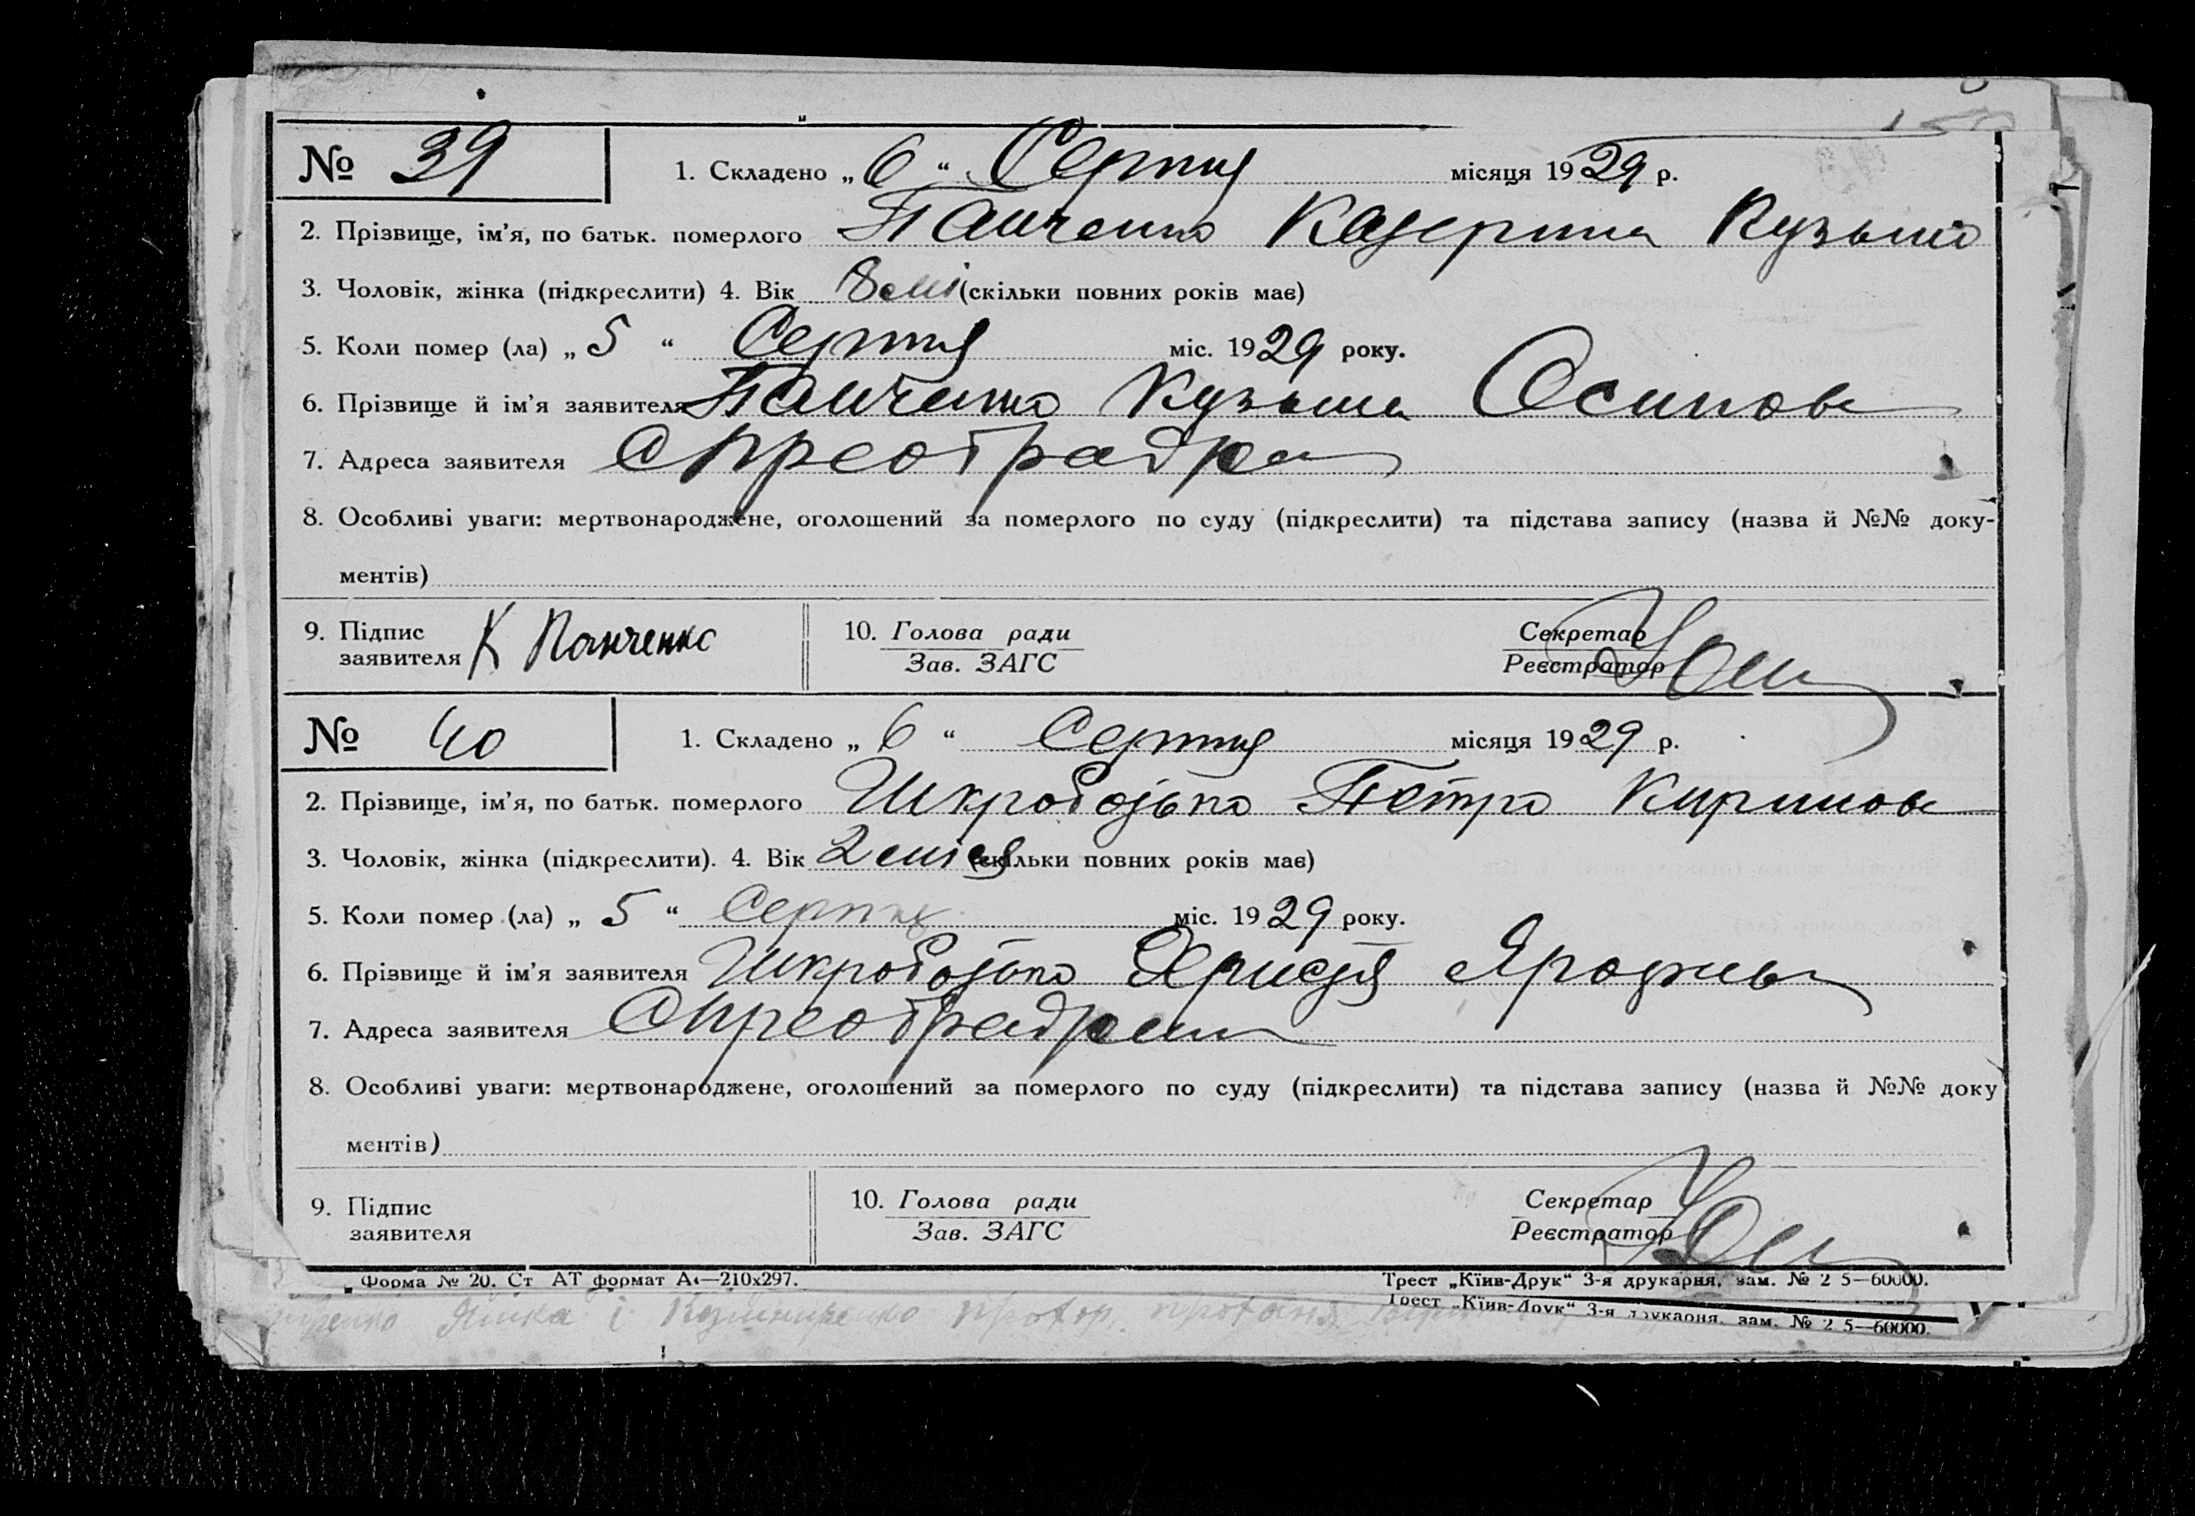 № 39 1. Складено „ 6 “ Серпня місяця 1929 р.
2. Прізвище, ім’я, по батьк. померлого Панченко Катерина Кузьмо
3. Чоловік, жінка (підкреслити) 4. Вік 8 (скільки повних років має)
5. Коли помер (ла) „ 5 “ Серпня міс. 1929 року.
6. Прізвище й ім’я заявителя Панченко Кузьма Осипов
7. Адреса заявителя
8. Особливі уваги: мертвонароджене, оголошений за померлого по суду (підкреслити) та підстава запису (назва й №№ доку-
ментів)
9. Підпис заявителя К Панченко 10. Голова ради Зав. ЗАГС Секретар Реєстратор
№ 40 1. Складено „ 6 “ Серпня місяця 1929 р.
2. Прізвище, ім’я, по батьк. померлого Шкроботько Петро Кирилов
3. Чоловік, жінка (підкреслити). 4. Вік 2 (скільки повних років має)
5. Коли помер (ла) „ 5 “ Серпня міс. 1929 року.
6. Прізвище й ім’я заявителя Шкроботько Христя
7. Адреса заявителя
8. Особливі уваги: мертвонароджене, оголошений за померлого по суду (підкреслити) та підстава запису (назва й №№ доку
ментів)
9. Підпис заявителя 10. Голова ради Зав. ЗАГС Секретар Реєстратор
Форма № 20. Ст АТ формат А4—210х297. Трест „Київ-Друк“ 3-я друкарня, зам. № 2 5—60000.
Трест „Київ-Друк“ 3-я друкарня, зам. № 2 5—60000.